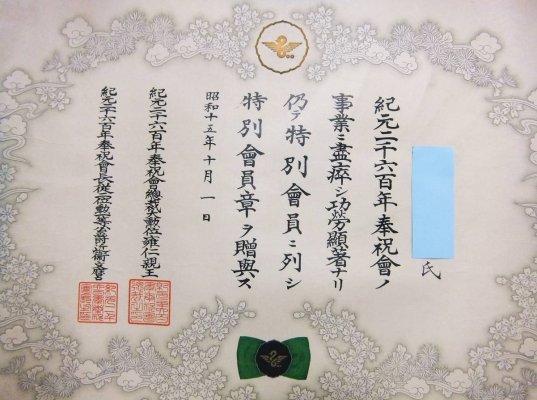 氏
紀元二千六百年奉祝會ノ
事業ニ盡瘁シ功勞顯著ナリ
仍テ特別會員ニ列シ
特別會員章ヲ贈與ス
昭和十五年十月一日
紀元二千六百年奉祝會總裁大勲位雍仁親王
紀元二千六百年奉祝會長從二位勲一等公爵近衞文麿